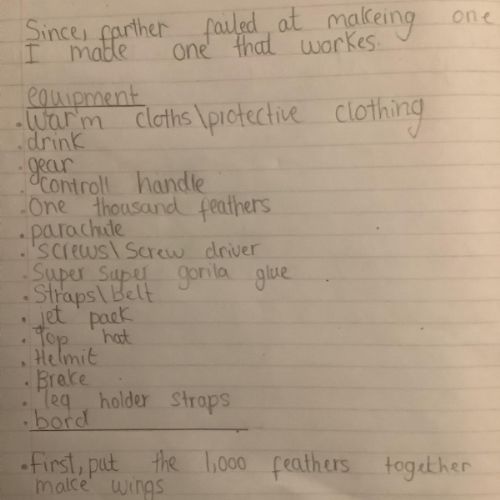 Since, farther failed at makeing one
I made one that workes.
equipment
• Warm cloths\protective clothing
• drink
• gear
• controll handle
• One thousand feathers
• parachute
• screws\screw driver
• Super super gorila glue
• Straps\belt
• jet pack
• Top hat
• Helmit
• Brake
• leg holder straps
• bord
• First, put the 1,000 feathers together
make wings